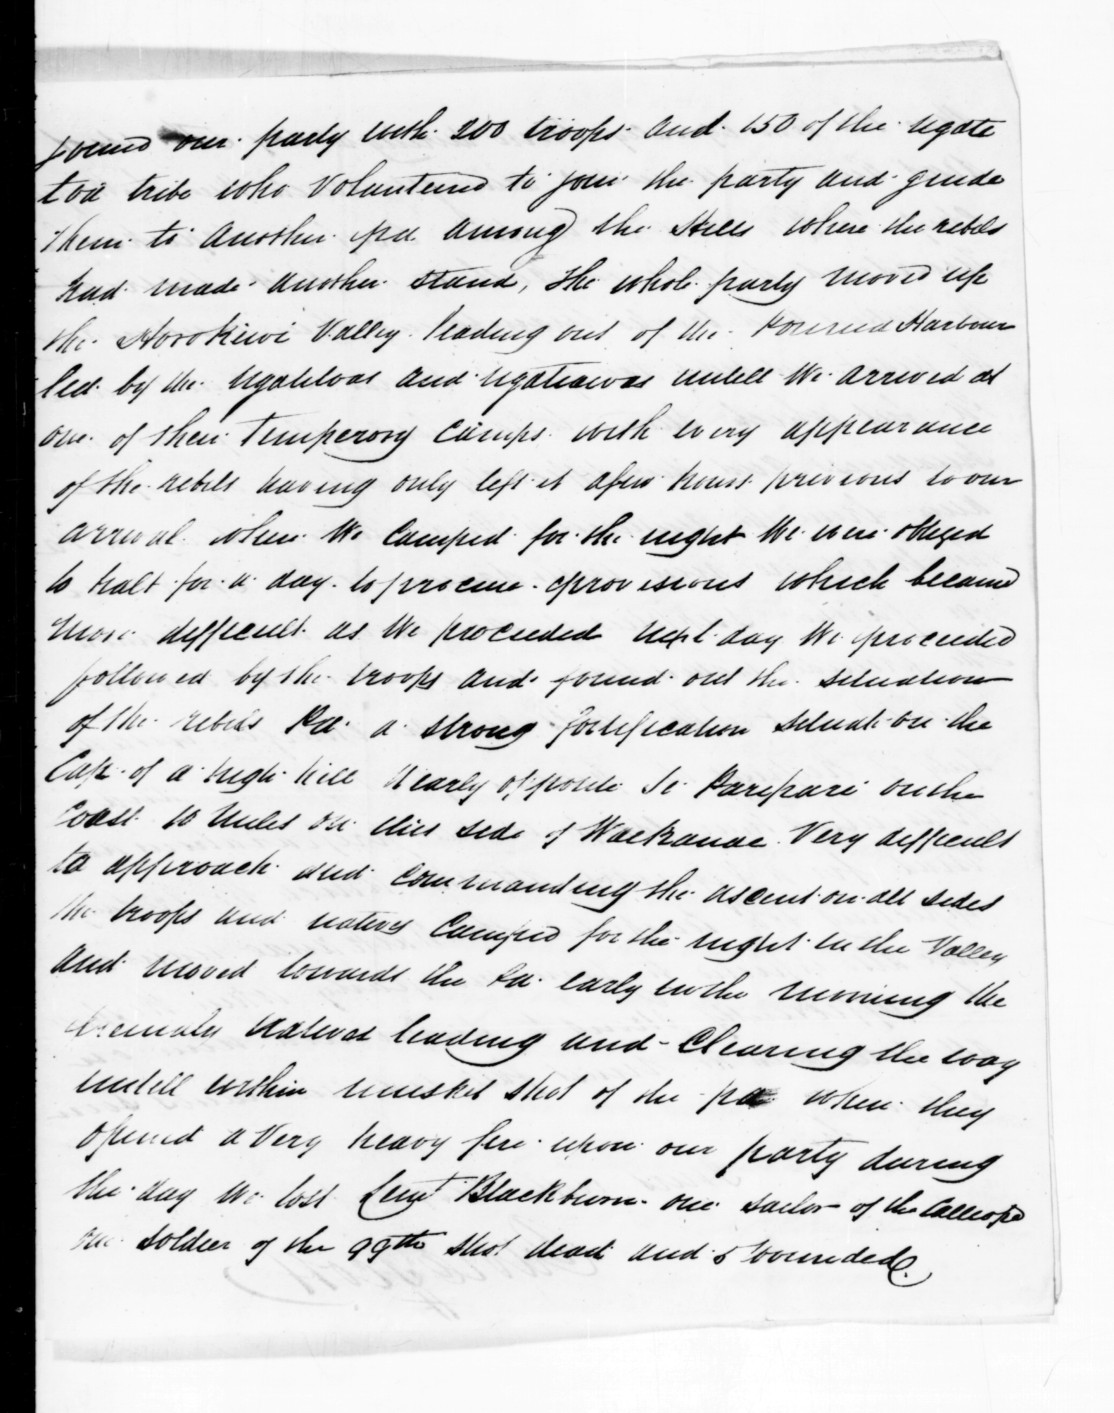 joined our party with 200 troops and 150 of the ngate
toa tribe who Volunteered to join the party and guide
them to another pa among the Hills where the rebels
had made another stand, the whole party moved up
the Horokiwi Valley leading out of the Porirua Harbour
led by the ngatitoas and ngatiawas untill We arrived at
one of their Temperory Camps with every appearance
of the rebels having only left it afew hours previous to our
arrival when We Camped for the night We were obliged
to halt for a day to procure provisions which became
more difficult as We proceeded next day We proceeded
followed by the troops and found out the situation
of the rebels Pa a strong fortification situate on the
Cap of a high hill Nearly opposite to Paripari on the
Coast 10 Miles on this side of Waikanae Very difficult
to approach and commanding the ascent on all sides
the troops and natives Camped for the night in the Valley
and moved towards the Pa early in the morning the
Natives leading and Clearing the way
untill within musket shot of the pa when they
opened a Very heavy fire upon our party during
the day We lost Leut Blackburn one sailor of the Calliope
one soldier of the 99th shot dead and 5 Wounded.